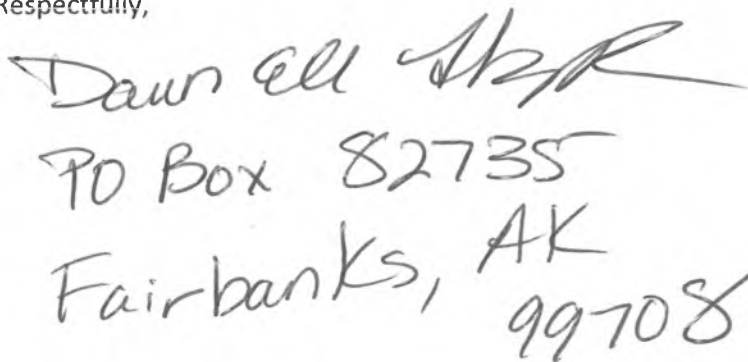 Respectfully,
Dawn Ell
PO Box 82735
Fairbanks, AK
99708